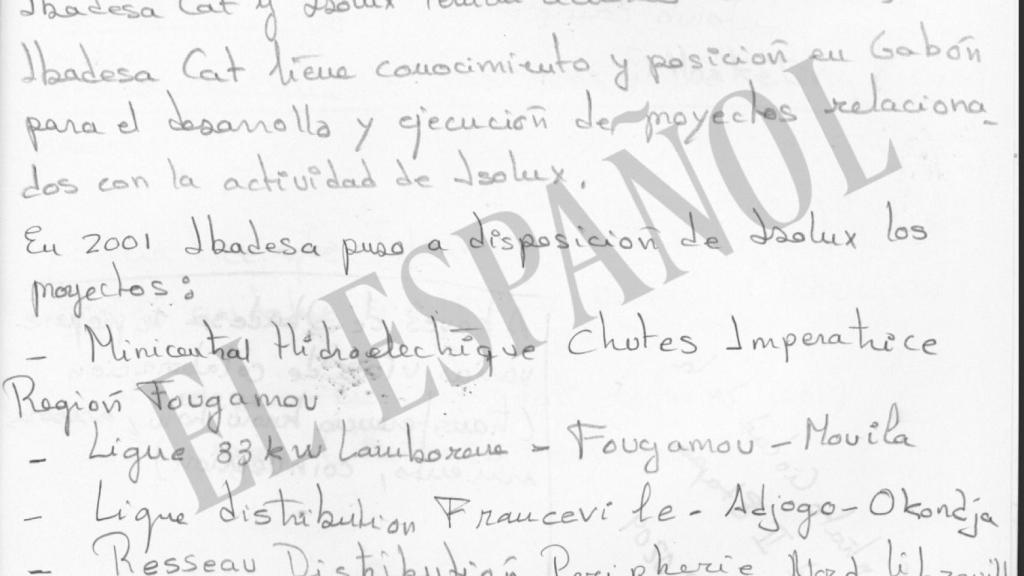 Ibadesa Cat y Isolux
Ibadesa Cat tiene conocimiento y posición en Gabón
para el desarrollo y ejecución de proyectos relaciona-
dos con la actividad de Isolux.
En 2001 Ibadesa puso a disposición de Isolux los
proyectos:
- Minicentral Hidroelectrique Chutes Imperatrice
Región Fougamou
- Ligne 33 kw Lambarene - Fougamou - Mouila
- Ligne distribution Franceville - Adjogo - Okondja
- Resseau Distribution Peripherie Nord
EL ESPAÑOL